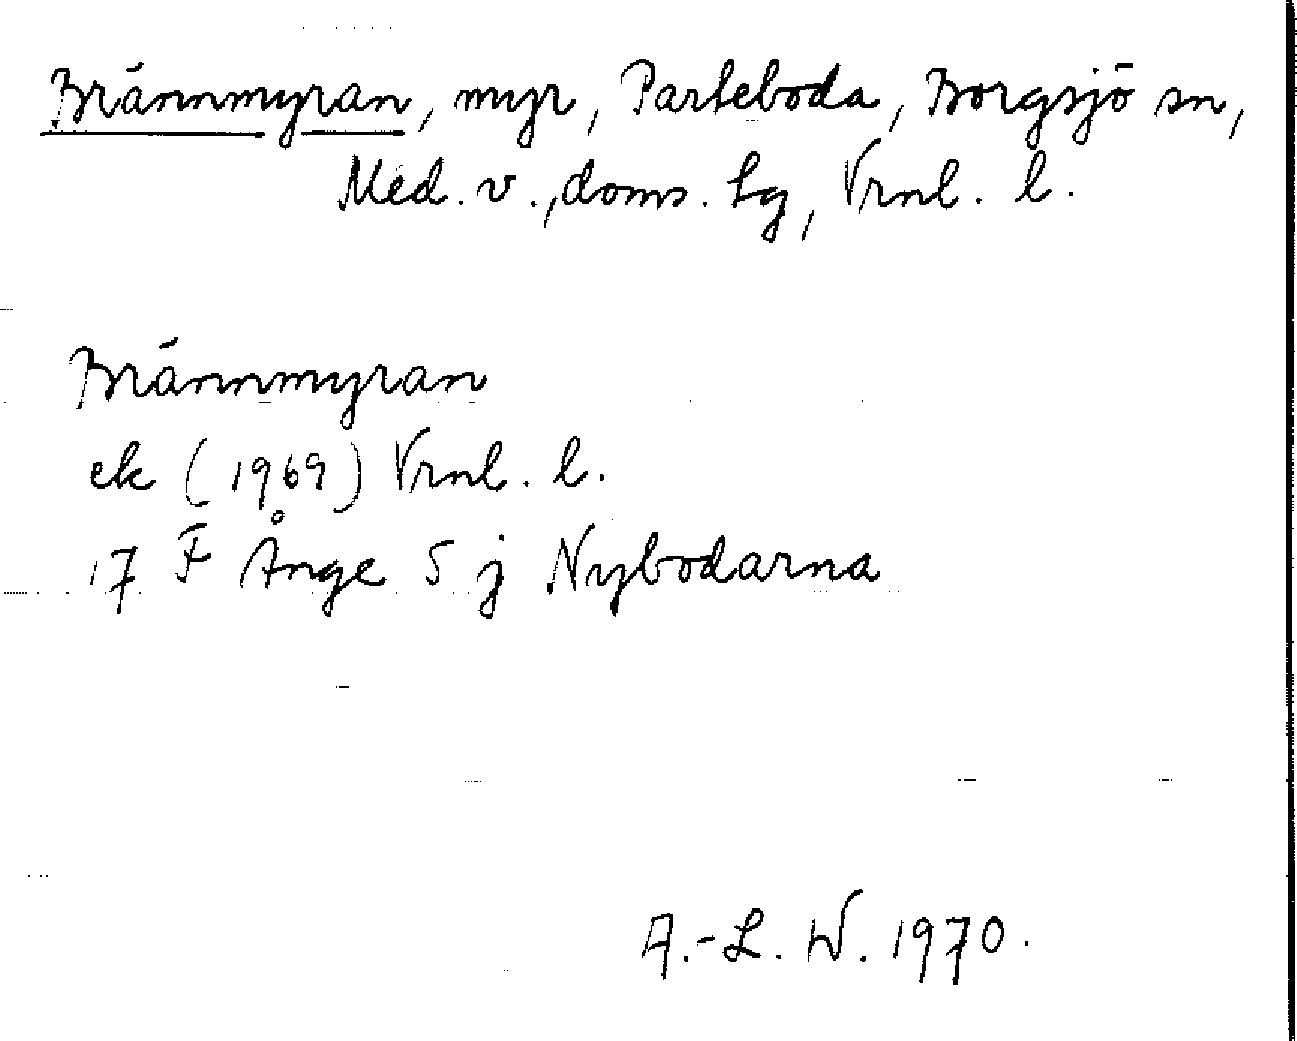 Brännmyran, myr, Parteboda, Borgsjö sn,
Med. v., doms. lg, Vrnl. l.
Brännmyran
ek (1969) Vrnl. l.
17 F Ånge 5 j Nybodarna
A.-L. W. 1970.